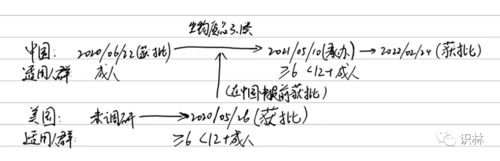 生物制品3.1类
中国: 2020/06/22(获批) → 2021/05/10(承办) → 2022/02/24 (获批)
适用人群: 成人 ≥6 <12+成人
(在中国提前获批)
美国: 未调研 → 2020/05/26 (获批)
适用人群: ≥6 <12+成人
识林